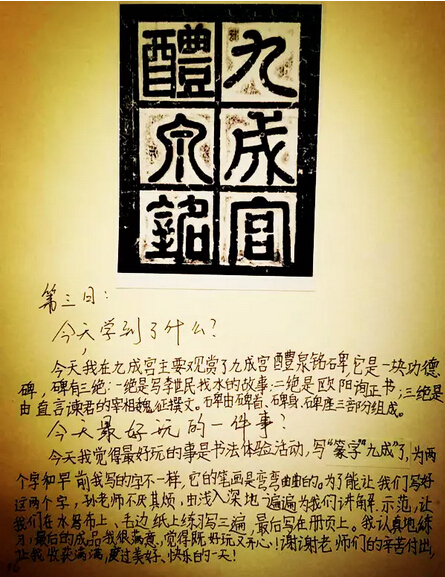 九成宫
醴泉铭
第三日：
今天学到了什么？
今天我在九成宫主要观赏了九成宫醴泉铭碑，它是一块功德
碑，碑有三绝：一绝是写李世民找水的故事；二绝是欧阳询正书；三绝是
由直言谏君的宰相魏征撰文。石碑由碑首、碑身、碑座三部分组成。
今天最好玩的一件事？
今天我觉得最好玩的事是书法体验活动，写“篆字”“九成”了，为两
个字和早前我写的字不一样，它的笔画是弯弯曲曲的。为了能让我们写好
这两个字，孙老师不厌其烦，由浅入深地一遍遍为我们讲解、示范，让
我们在水写布上、毛边纸上练习写三遍，最后写在册页上。我认真地练
习，最后的成品我很满意，觉得既好玩又开心！谢谢老师们的辛苦付出，
让我收获满满，度过美好、快乐的一天！